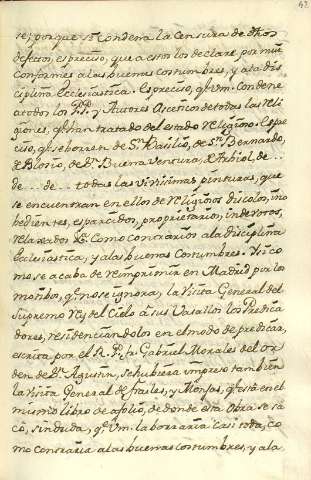 42
se; porque si condena la Censura de dhos
defectos, es preciso, que a estos los declare por muy
conformes a las buenas costumbres, y a la dis
ciplina Ecclesiastica. Es preciso, q.e Vm. condene
a todos los PP. y Autores Asceticos de todas las reli
giones, q.e han tratado del estado religioso. Es pre
ciso, q.e se borren de S.n Basilio, de S.n Bernardo,
de Blosio, de S.n Buenaventura, de Arbiol, de ...
de ... de ... todas las vivisimas pinturas, que
se encuentran en ellos de religiosos discolos, ino
bedientes, esparcidos, proprietarios, indevotos,
relaxados &a. como contrarios a la disciplina
Ecclesiastica, y a las buenas costumbres. Y si co
mo se acaba de reimprimir en Madrid por los
motibos, q.e no se ignora, la Visita General del
Supremo Rey del Cielo à sus Vasallos los Predica
dores, residenciandolos en el modo de predicar,
escrita por el R. P. Fr. Gabriel Morales del or
den de S.n Agustin, se hubiera impreso tambien
la Visita General de frailes, y Monjas, q.e està en el
mismo libro de a folio, de donde esta obra se sa
cò, sin duda, q.e Vm. la borraria casi toda, co
mo contraria a las buenas costumbres, y a la